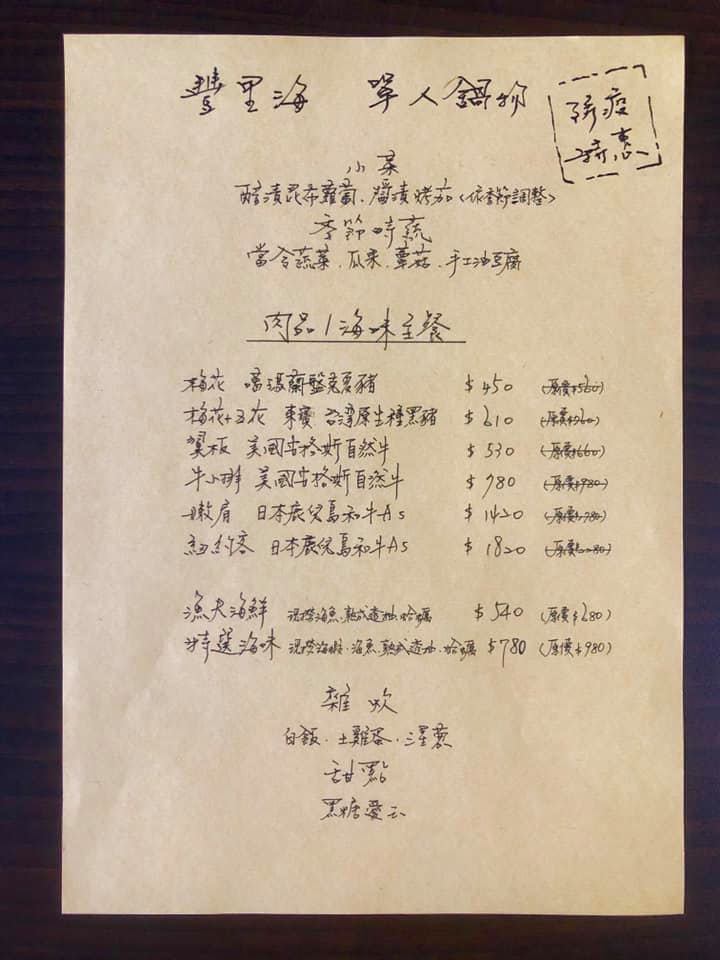 豐里海 單人鍋物
防疫
特惠
小菜
醋漬昆布蘿蔔、醬漬烤茄〈依季節調整〉
季節時蔬
當令蔬菜、瓜果、蕈菇、手工油豆腐
肉品/海味主餐
梅花 噶瑪蘭盤克夏豬 $450 (原價$560)
梅花+五花 東寶 台灣原生種黑豬 $610 (原價$760)
翼板 美國安格斯自然牛 $530 (原價$660)
牛小排 美國安格斯自然牛 $780 (原價$980)
嫩肩 日本鹿兒島和牛A5 $1420 (原價$1780)
紐約客 日本鹿兒島和牛A5 $1820 (原價$2280)
漁夫海鮮 現撈海魚、熟成透抽、蛤蠣 $540 (原價$680)
特選海味 現撈海蝦、海魚、熟成透抽、蛤蠣 $780 (原價$980)
雜炊
白飯、土雞蛋、三星蔥
甜點
黑糖愛玉